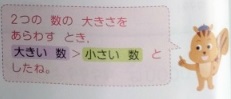 2つの 数の 大きさを
あらわす とき、
大きい 数 > 小さい 数 と
したね。